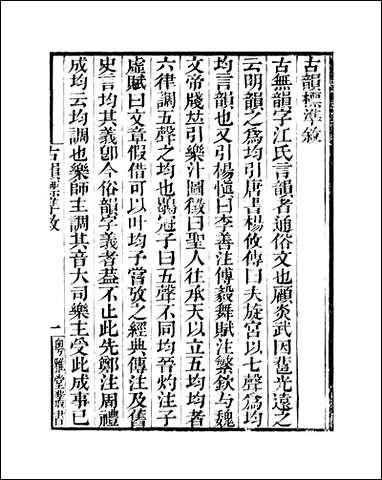 古韻標準敘
古無韻字江氏言韻者通俗文也顧炎武因葛光遠之
云明韻之為均引唐書楊收傳曰夫旋宮以七聲為均
均言韻也又引楊愼曰李善注傅毅舞賦注繁欽与魏
文帝牋竝引樂汁圖徵曰聖人往承天以立五均均者
六律調五聲之均也鶡冠子曰五聲不同均晉灼注子
虛賦曰文章假借可以叶均予嘗攷之經典傳注及舊
史言均其義卽今俗韻字義者葢不止此先鄭注周禮
成均云均調也樂師主調其音大司樂主受此成事已
古韻標準敘
一
粵雅堂叢書